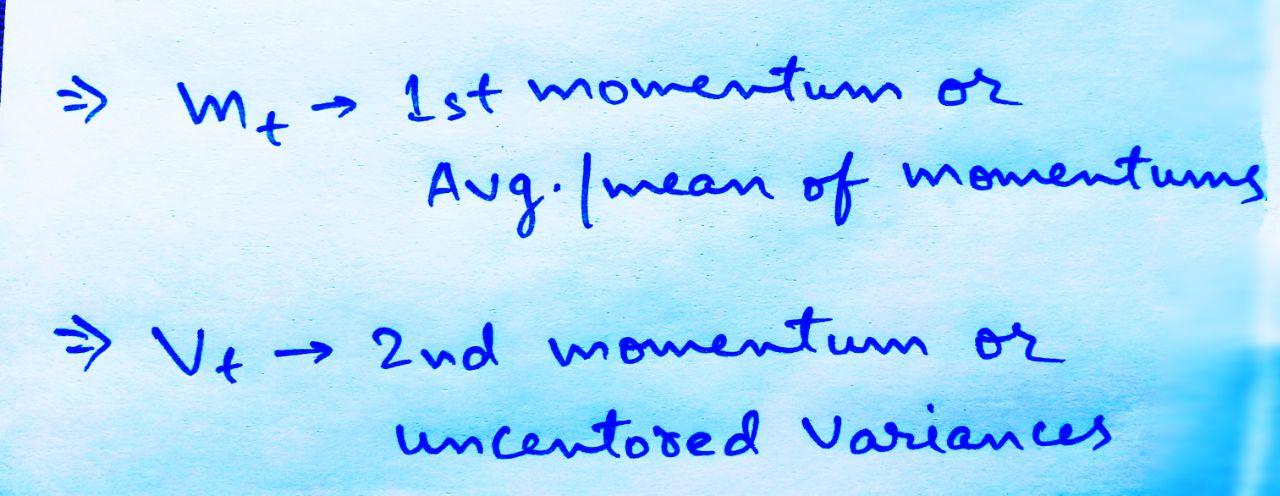 ⇒ mt → 1st momentum or
Avg. / mean of momentums
⇒ Vt → 2nd momentum or
uncentored Variances